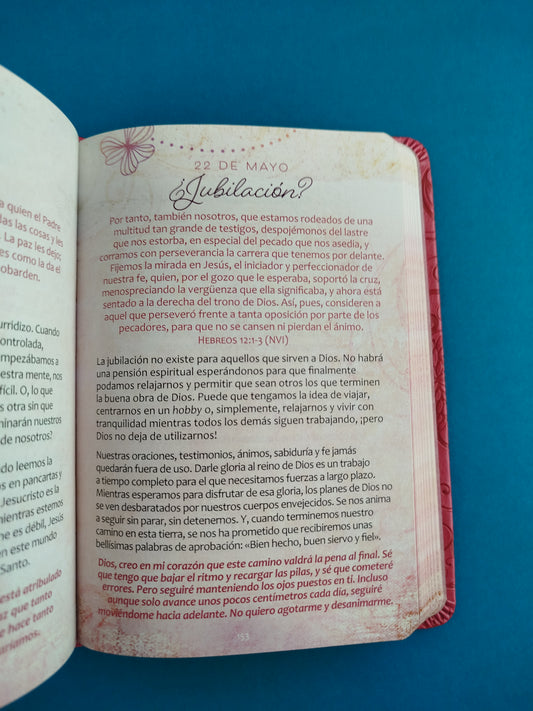 a quien el Padre
das las cosas y les
La paz les dejo;
es como la da el
obarden.
urridizo. Cuando
ontrolada,
mpezábamos a
estra mente, nos
fícil. O, lo que
otra sin que
minarán nuestros
de nosotros?
do leemos la
en pancartas y
Jesucristo es la
mientras estemos
e es débil, Jesús
en este mundo
Santo.
está atribulado
az que tanto
e hace tanto
aríamos.
22 DE MAYO
¿Jubilación?
Por tanto, también nosotros, que estamos rodeados de una
multitud tan grande de testigos, despojémonos del lastre
que nos estorba, en especial del pecado que nos asedia, y
corramos con perseverancia la carrera que tenemos por delante.
Fijemos la mirada en Jesús, el iniciador y perfeccionador de
nuestra fe, quien, por el gozo que le esperaba, soportó la cruz,
menospreciando la vergüenza que ella significaba, y ahora
está sentado a la derecha del trono de Dios. Así, pues, consideren a
aquel que perseveró frente a tanta oposición por parte de los
pecadores, para que no se cansen ni pierdan el ánimo.
HEBREOS 12:1-3 (NVI)
La jubilación no existe para aquellos que sirven a Dios. No habrá
una pensión espiritual esperándonos para que finalmente
podamos relajarnos y permitir que sean otros los que terminen
la buena obra de Dios. Puede que tengamos la idea de viajar,
centrarnos en un hobby o, simplemente, relajarnos y vivir con
tranquilidad mientras todos los demás siguen trabajando, ¡pero
Dios no deja de utilizarnos!
Nuestras oraciones, testimonios, ánimos, sabiduría y fe jamás
quedarán fuera de uso. Darle gloria al reino de Dios es un trabajo
a tiempo completo para el que necesitamos fuerzas a largo plazo.
Mientras esperamos para disfrutar de esa gloria, los planes de Dios no
se ven desbaratados por nuestros cuerpos envejecidos. Se nos anima
a seguir sin parar, sin detenernos. Y, cuando terminemos nuestro
camino en esta tierra, se nos ha prometido que recibiremos unas
bellísimas palabras de aprobación: «Bien hecho, buen siervo y fiel».
Dios, creo en mi corazón que este camino valdrá la pena al final. Sé
que tengo que bajar el ritmo y recargar las pilas, y sé que cometeré
errores. Pero seguiré manteniendo los ojos puestos en ti. Incluso
aunque solo avance unos pocos centímetros cada día, seguiré
moviéndome hacia adelante. No quiero agotarme y desanimarme.
153